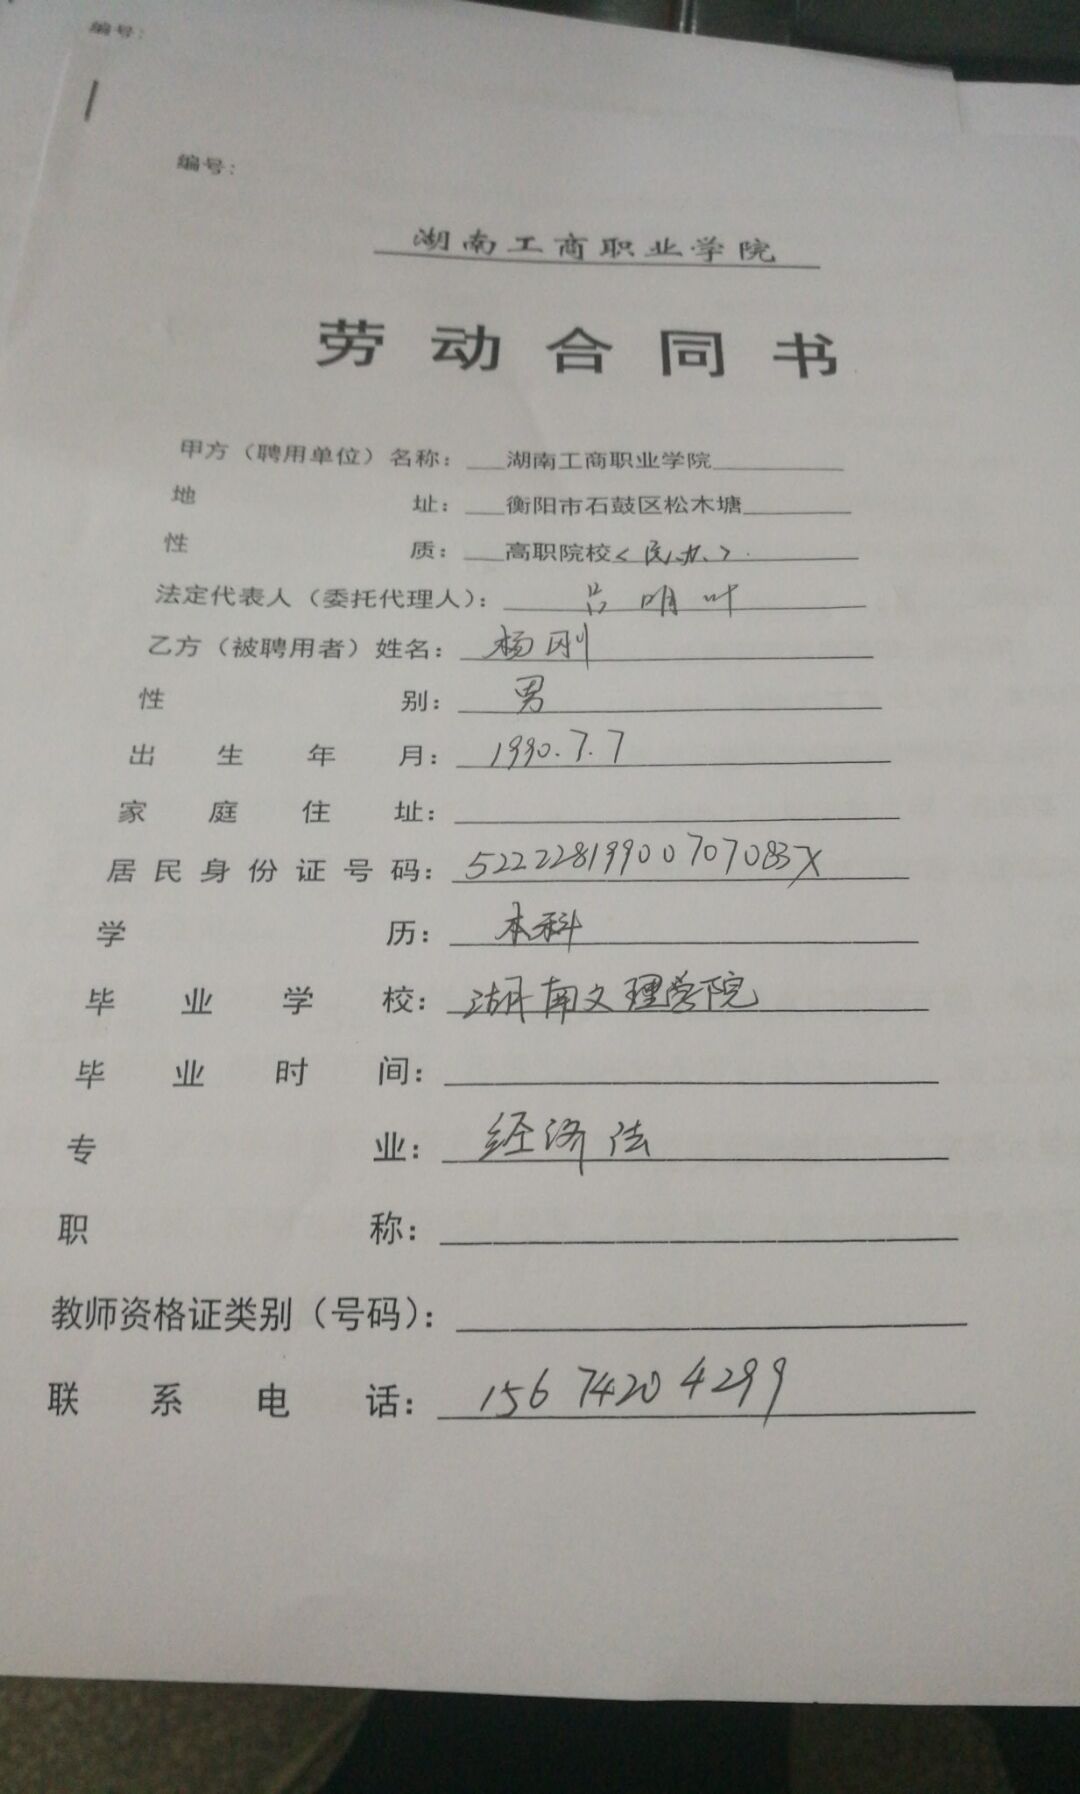 编号：
编号：
湖南工商职业学院
劳动合同书
甲方（聘用单位）名称：湖南工商职业学院
地址：衡阳市石鼓区松木塘
性质：高职院校<民办>
法定代表人（委托代理人）：吕明叶
乙方（被聘用者）姓名：杨刚
性别：男
出生年月：1990.7.7
家庭住址：
居民身份证号码：52222819900707083X
学历：本科
毕业学校：湖南文理学院
毕业时间：
专业：经济法
职称：
教师资格证类别（号码）：
联系电话：15674204299